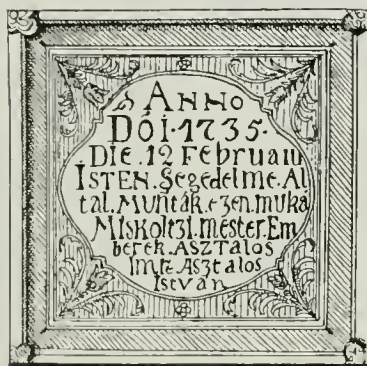 A ANNO
DÓI·1735·
DIE.12 Februaiu
ISTEN.Segedelme.Al
tal.Munták.ezen.muká
Miskoltzi.mester.Em
berek.ASZTALOS
Imre Asztalos
István